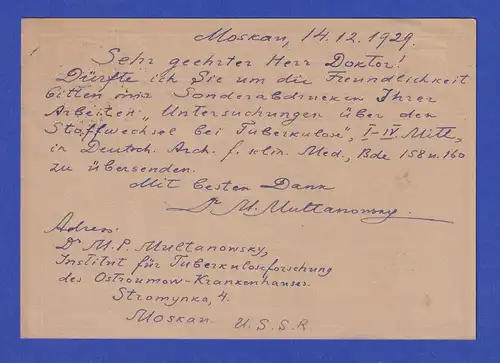 Moskau, 14.12.1929.
Sehr geehrter Herr Doktor!
Dürfte ich Sie um die Freundlichkeit
bitten mir Sonderabdrucken Ihrer
Arbeiten „Untersuchungen über den
Stoffwechsel bei Tuberkulose", I-IV Mitt,
in Deutsch. Arch. f. klin. Med., Bde 158 u. 160
zu übersenden.
Mit besten Dank
Dr M. Multanowsky.
Adress:
Dr M.P. Multanowsky,
Institut für Tuberkuloseforschung
des Ostroumow-Krankenhauses
Stromynka, 4.
Moskau. U.S.S.R.